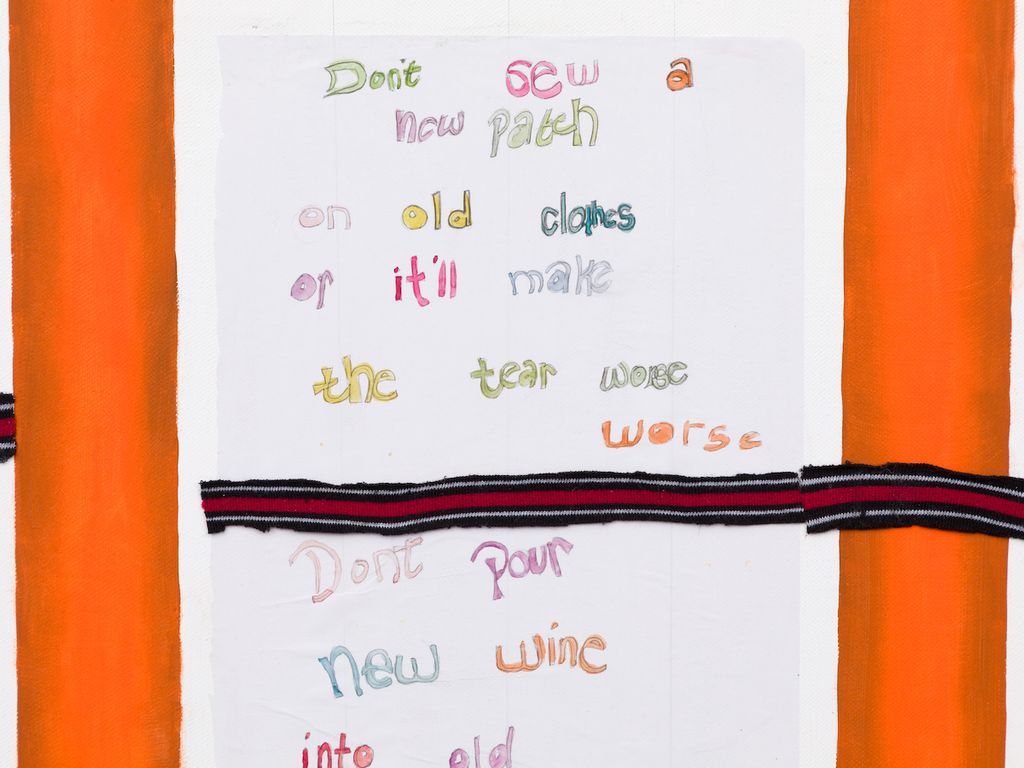 Don't sew a
new patch
on old clothes
or it'll make
the tear worse
worse
Dont Pour
new wine
into old